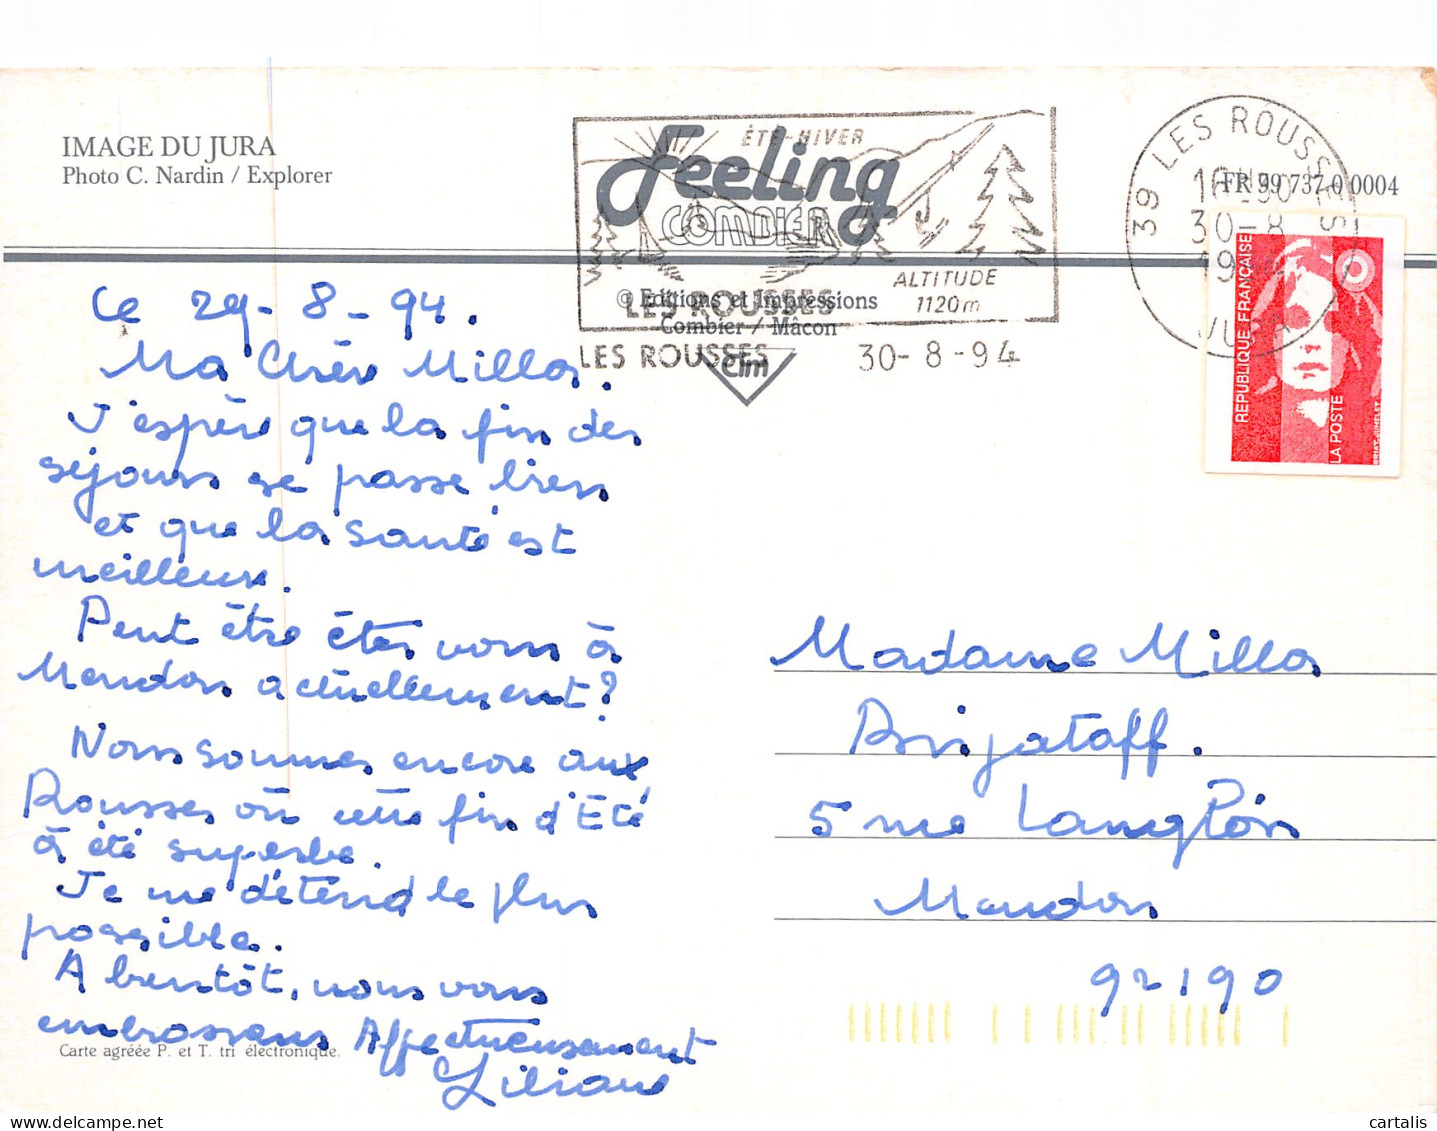 IMAGE DU JURA
Photo C. Nardin / Explorer
ÉTÉ-HIVER
Feeling
COMBIER
ALTITUDE
1120m
LES ROUSSES
© Editions et Impressions
Combier / Mâcon
LES ROUSSES
30-8-94
Cim
39 LES ROUSSES
30-8
JURA
FR 39 737 0 0004
REPUBLIQUE FRANÇAISE
LA POSTE
Ce 29-8-94.
Ma Chère Milla.
J'espère que la fin des
séjours se passe bien
et que la santé est
meilleure.
Peut être êtes vous à
Meudon actuellement?
Nous sommes encore aux
Rousses où cette fin d'Eté
à été superbe.
Je me détend le plus
possible.
A bientôt, nous vous
embrassons Affectueusement
Liliane
Carte agréée P. et T. tri électronique.
Madame Milla
5 rue
Meudon
92190
cartalis